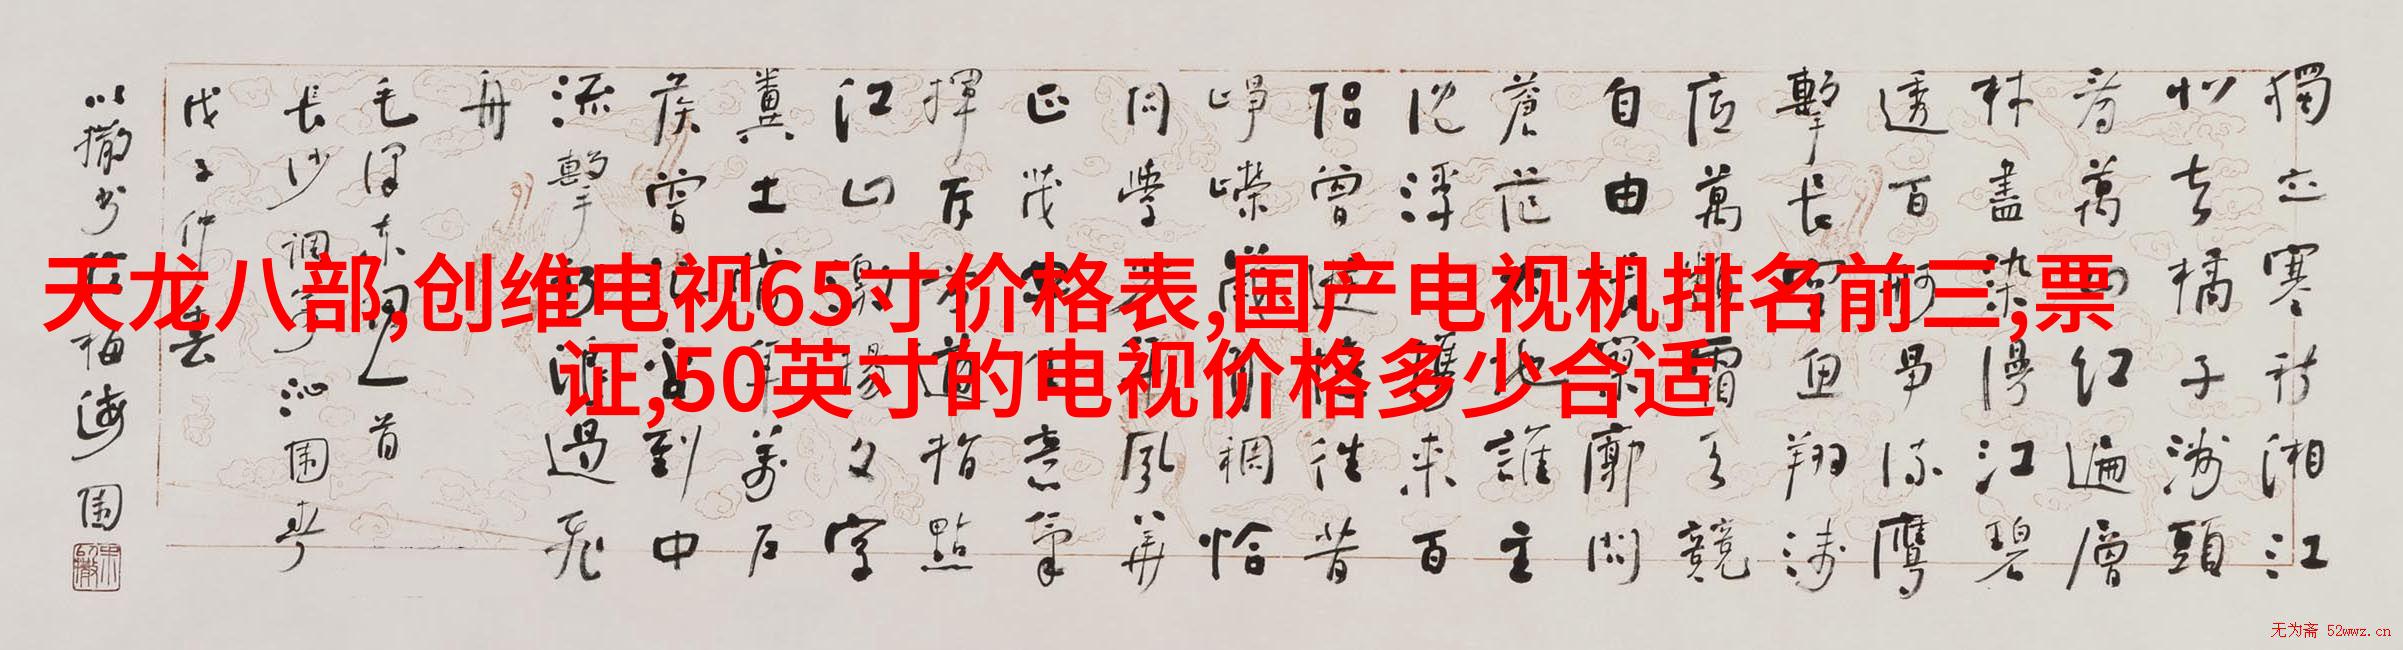 天龙八部,创维电视65寸价格表,国产电视机排名前三,票
证,50英寸的电视价格多少合适
獨立寒秋湘江
北去橘子洲頭
看萬山红遍層
林盡染漫江碧
透百舸爭流鷹
擊長空魚翔淺
底萬類霜天競
自由悵寥廓問
蒼茫大地誰主
沈浮攜来百
侣曾遊憶往昔
崢嶸歲月稠恰
同學少年風華
正茂書生意氣
揮斥方遒指點
江山激揚文字
糞土當年萬户
侯曾记否到中
流擊水浪遏飛
舟
毛澤东首
长沙调寄沁园春
戊子仲
书梅海園
无为斋 52wwz.cn